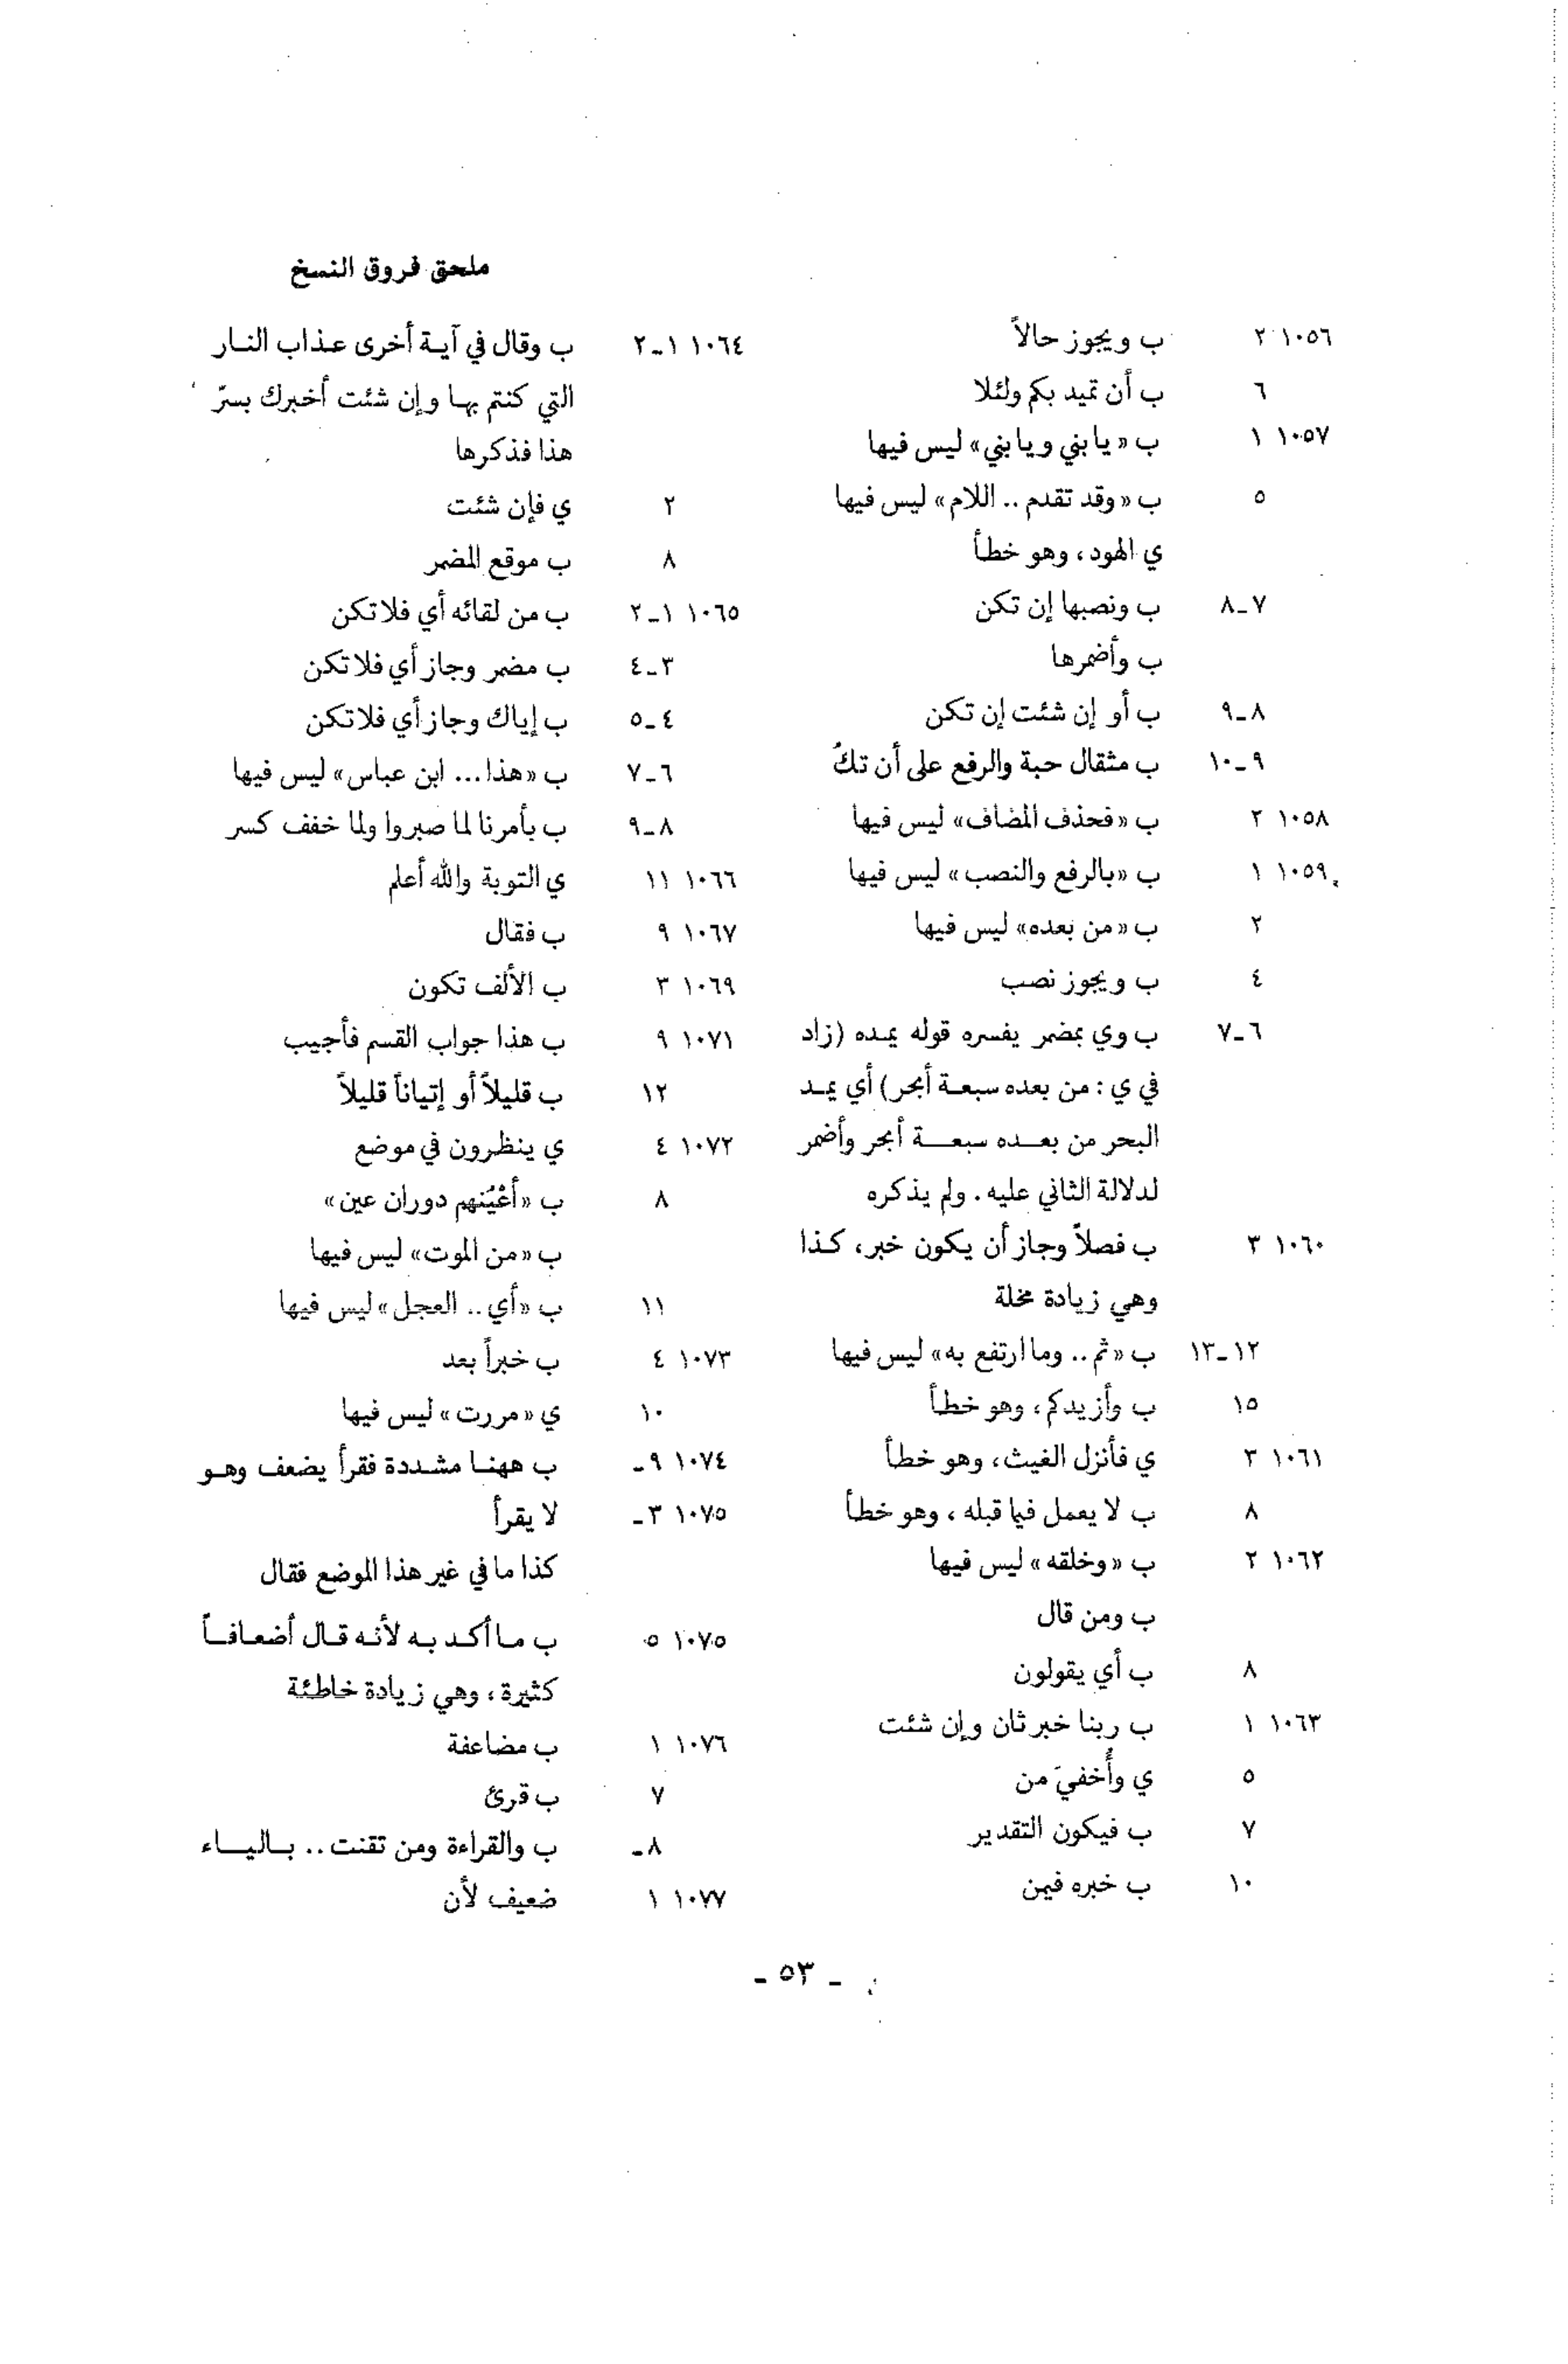 ملحق فروق النسخ
١٠٥٦ ٢ ب ويجوز حالاً
٦ ب أن تميد بكم ولئلا
١٠٥٧ ١ ب «يا بني ويا بني» ليس فيها
٥ ب «وقد تقدم .. اللام» ليس فيها
ي الهود، وهو خطأ
٧ـ٨ ب ونصبها إن تكن
ب وأضمرها
٨ـ٩ ب أو إن شئت إن تكن
٩ـ١٠ ب مثقال حبة والرفع على أن تكُ
١٠٥٨ ٢ ب «فحذف المضاف» ليس فيها
١٠٥٩ ١ ب «بالرفع والنصب» ليس فيها
٢ ب «من بعده» ليس فيها
٤ ب ويجوز نصب
٦ـ٧ ب وي بمضمر يفسره قوله يمده (زاد
في ي : من بعده سبعة أبحر) أي يمد
البحر من بعده سبعة أبحر وأضمر
لدلالة الثاني عليه . ولم يذكره
١٠٦٠ ٣ ب فصلاً وجاز أن يكون خبر، كذا
وهي زيادة مخلة
١٢ـ١٣ ب «ثم .. وما ارتفع به» ليس فيها
١٥ ب وأزيدكم، وهو خطأ
١٠٦١ ٣ ي فأنزل الغيث، وهو خطأ
٨ ب لا يعمل فيما قبله ، وهو خطأ
١٠٦٢ ٢ ب «وخلقه» ليس فيها
ب ومن قال
٨ ب أي يقولون
١٠٦٣ ١ ب ربنا خبر ثان وإن شئت
٥ ي وأُخفيَ من
٧ ب فيكون التقدير
١٠ ب خبره فيمن
١٠٦٤ ١ـ٢ ب وقال في آية أخرى عذاب النار
التي كنتم بها وإن شئت أخبرك بسرّ
هذا فذكرها
٢ ي فإن شئت
٨ ب موقع المضمر
١٠٦٥ ١ـ٢ ب من لقائه أي فلا تكن
٣ـ٤ ب مضمر وجاز أي فلا تكن
٤ـ٥ ب إياك وجاز أي فلا تكن
٦ـ٧ ب «هذا ... ابن عباس» ليس فيها
٨ـ٩ ب بأمرنا لما صبروا ولما خفف كسر
١٠٦٦ ١١ ي التوبة والله أعلم
١٠٦٧ ٩ ب فقال
١٠٦٩ ٣ ب الألف تكون
١٠٧١ ٩ ب هذا جواب القسم فأجيب
١٢ ب قليلاً أو إتياناً قليلاً
١٠٧٢ ٤ ي ينظرون في موضع
٨ ب «أعْيُنهم دوران عين»
ب «من الموت» ليس فيها
١١ ب «أي .. العجل» ليس فيها
١٠٧٣ ٤ ب خبراً بعد
١٠ ي «مررت» ليس فيها
١٠٧٤ ٩ـ ب ههنا مشددة فقرأ يضعف وهو
١٠٧٥ ٣ـ لا يقرأ
كذا ما في غير هذا الموضع فقال
١٠٧٥ ٥ ب ما أكد به لأنه قال أضعافاً
كثيرة ، وهي زيادة خاطئة
١٠٧٦ ١ ب مضاعفة
٧ ب قرئ
٨ـ ب والقراءة ومن تقنت .. بالياء
١٠٧٧ ١ ضعيف لأن
ـ ٥٣ ـ